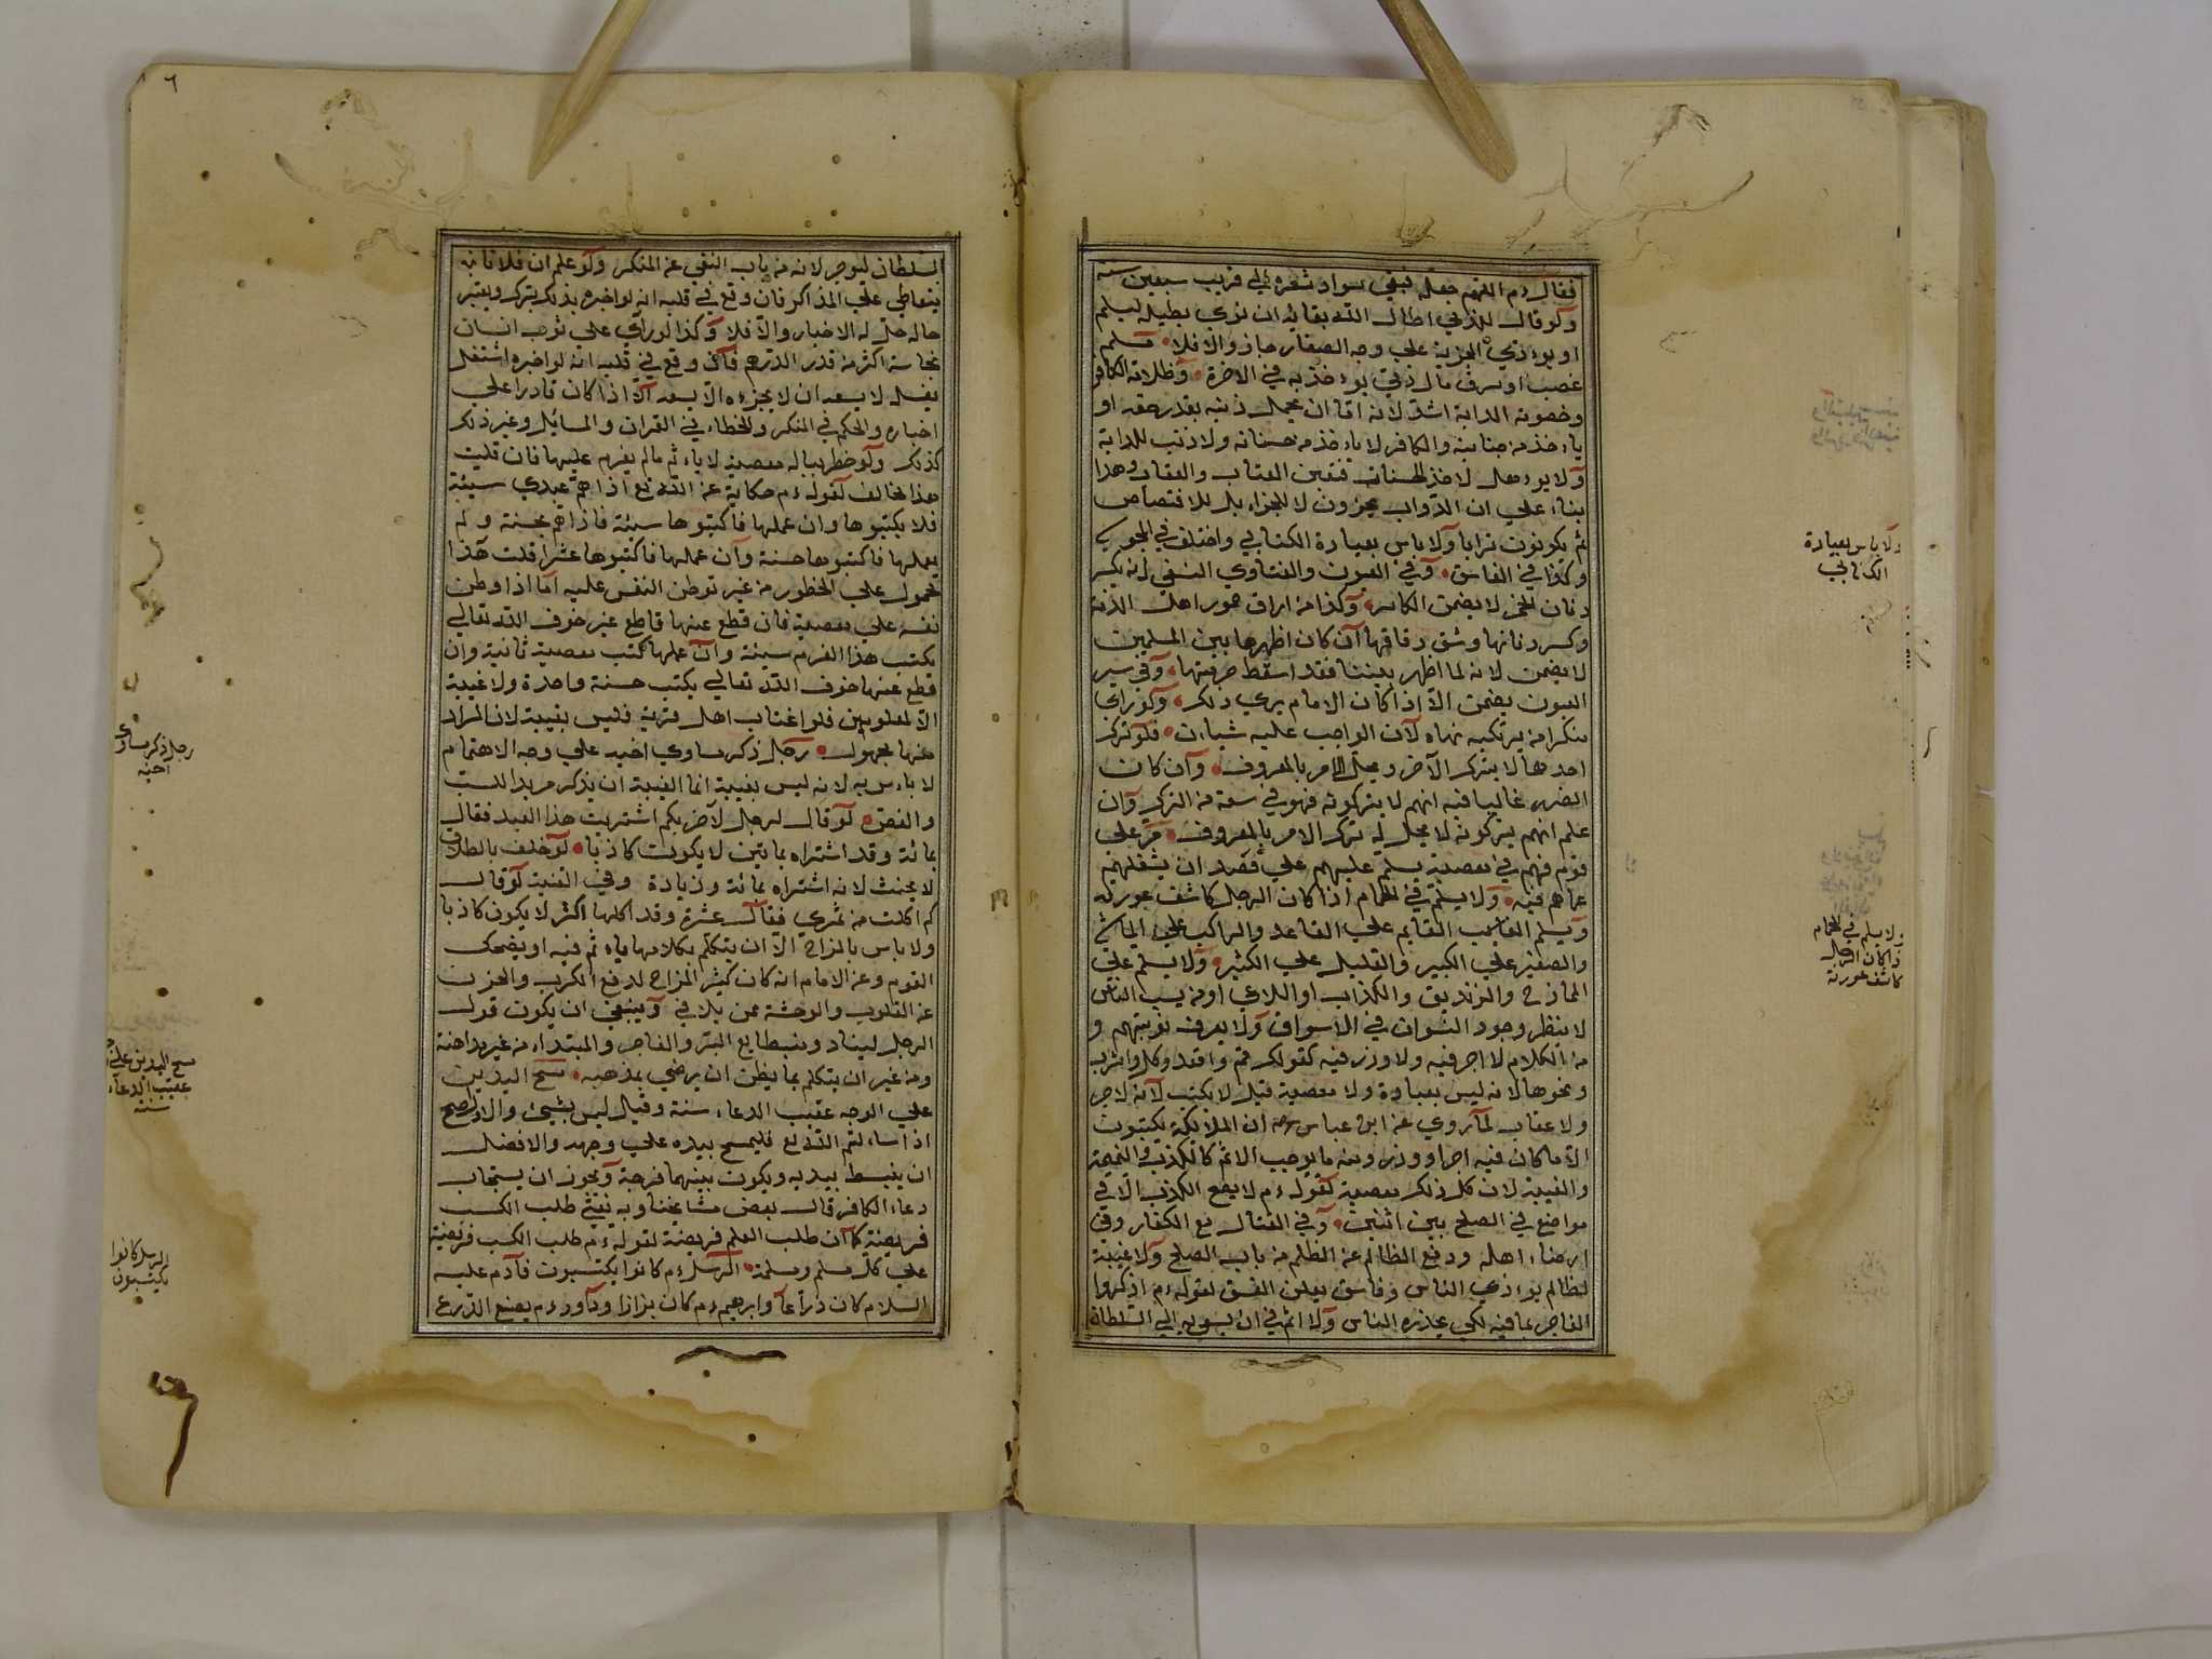 فقال ءم اللهم جمله فبقي سواد شعره الي قريب سبعين سنة
ولو قال للذمي اطال الله بقاك ان نوي يطيله ليسلم
او يوءدي الجزية علي وجه الصغار جاز والا فلا مسلم
غصب او سرق مال ذمي يوءخذ به في الاخرة وظلامة الكافر
وخصومة الدابة اشد لانه اما ان يحمل ذنبه بقدر حقه او
ياءخذ من حسناته والكافر لا ياءخذ من حسناته ولا ذنب للدابة
ولا يوءهل لاخذ الحسنات فتعين العتاب والعقاب وهذا
بناء علي ان الدواب يجزون لا للجزاء بل للاقتصاص
ثم يكونون ترابا ولا باس بعيادة الكتابي واختلف في المجوسي
وكذا في الفاسق وفي العيون والفتاوي النسفي لو يكسر
دنان الخمر لا يضمن الكاسر وكذا من اراق خمور اهل الذمة
وكسر دنانها وشق زقاقها ان كان اظهرها بين المسلمين
لا يضمن لانه لما اظهر بيننا فقد اسقط حرمتها وفي سير
العيون يضمن الا اذا كان الامام يري ذلك ولو راي
منكرا من يرتكبه نهاه لان الواجب عليه شياءن فلو ترك
احدهما لا يترك الآخر ويحل الامر بالمعروف وان كان
الضرر غالبا فيه انهم لا يتركونه فهو في سعة من الترك وان
علم انهم يتركونه لا يحل له ترك الامر بالمعروف مر علي
قوم فهم في معصية يسلم عليهم علي قصد ان يشغلهم
عما هم فيه ولا يسلم في الحمام اذا كان الرجل كاشف عورته
ويسلم القايم علي القاعد والراكب علي الماشي
والصغير علي الكبير والقليل علي الكثير ولا يسلم علي
المازح والزنديق والكذاب او اللاغي او من يسب الناس
لا ينظر وجود النسوان في الاسواق ولا يعرف توبتهم و
من الكلام لا اجر فيه ولا وزر فيه كقولك قم واقعد وكل واشرب
ونحوها لانه ليس بعبادة ولا معصية قيل لا يكتب لانه لا اجر
ولا عقاب لما روي عن ابن عباس ان الملائكة لا يكتبون
الا ما كان فيه اجر او وزر ومنه ما يوجب الاثم كالكذب والنميمة
والغيبة لان كل ذلك معصية لقوله ءم لا يصح الكذب الا في
مواضع في الصلح بين اثنين وفي القتال مع الكفار وفي
ارضاء اهله ودفع الظالم عن الظلم من باب الصلح ولا غيبة
لظالم يوءذي الناس وفاسق يعلن الفسق لقوله ءم اذكروا
الفاجر بما فيه لكي يحذره الناس ولا اثم في ان يسعي به الي السلطان
ولا باس بعيادة
الكتابي
ولا يسلم في الحمام
اذا كان الرجل
كاشف عورته
السلطان ليزجر لانه من باب النهي عن المنكر ولو علم ان فلانا نه
يتعاطي علي المناكر فان وقع في قلبه انه لو اخبره بذلك يترك ويغير
حاله حل له الاخبار والا فلا وكذا لو راي علي ثوب انسان
نجاسة اكثر من قدر الدرهم فان وقع في قلبه انه لو اخبره اشتغل
بغسله لا يسعه ان لا يخبره والا يسعه الا اذا كان قادرا علي
اخباره والحكم في المنكر والخطاء في القران والمسائل وغير ذلك
كذلك ولو خطر بباله معصية لا ياءثم ما لم يعزم عليها فان قلت
هذا مخالف لقوله ءم حكاية عن الله تع اذا هم عبدي سيئة
فلا يكتبوها وان عملها فاكتبوها سيئة فاذا هم بحسنة ولم
يعملها فاكتبوها حسنة وان عملها فاكتبوها عشرا قلت هذا
محمول علي الخطور من غير توطن النفس عليه اما اذا وطن
نفسه علي معصية فان قطع عنها قاطع غير خوف الله تعالي
يكتب هذا العزم سيئة وان عملها كتب معصية ثانية وان
قطع عنها خوف الله تعالي يكتب حسنة واحدة ولا غيبة
الا لمعلومين فلو اغتاب اهل قرية فليس بغيبة لان المراد
منها مجهول رجل ذكر مساوي اخيه علي وجه الاهتمام
لا باءس به لانه ليس بغيبة انما الغيبة ان يذكر مريدا للسب
والنقص لو قال لرجل لآخر بكم اشتريت هذا العبد فقال
بمائة وقد اشتراه بمايتين لا يكون كاذبا لو حلف بالطلاق
لا يحنث لانه اشتراه بمائة وزيادة وفي القنية لو قال
كم اكلت من تمري فقال عشرة وقد اكلها اكثر لا يكون كاذبا
ولا باس بالمزاح الا ان يتكلم بكلام ياءثم فيه او يضحك
القوم وعن الامام انه كان كثير المزاح لدفع الكرب والحزن
عن القلوب والوحشة ممن يلاقي وينبغي ان يكون قول
الرجل لينا ومنبسطا مع البر والفاجر والمبتدع من غير مداهنة
ومن غير ان يتكلم بما يظن ان يرضي بمذهبه مسح اليدين
علي الوجه عقيب الدعاء سنة وقيل ليس بشيئ والاول اصح
اذا ساءلتم الله تع فليمسح بيده علي وجهه والافضل
ان يبسط يديه ويكون بينهما فرجة ويجوز ان يستجاب
دعاء الكافر قال بعض مشايخنا وبه نفتي طلب الكسب
فريضة كما ان طلب العلم فريضة لقوله ءم طلب الكسب فريضة
علي كل مسلم ومسلمة الرسل ءم كانوا يكتسبون فآدم عليه
السلام كان ذراعا وابرهيم ءم كان بزازا وداود ءم يصنع الدرع
رجل ذكر مساوي
اخيه
مسح اليدين علي
عقيب الدعاء
سنة
الرسل كانوا
يكتسبون